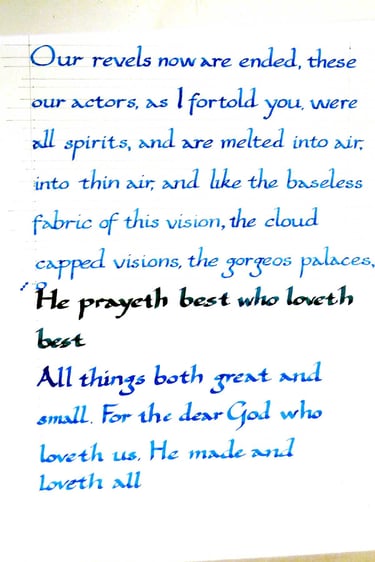 Our revels now are ended, these
our actors, as I fortold you, were
all spirits, and are melted into air,
into thin air, and like the baseless
fabric of this vision, the cloud
capped visions, the gorgeos palaces,
He prayeth best who loveth
best
All things both great and
small. For the dear God who
loveth us, He made and
loveth all